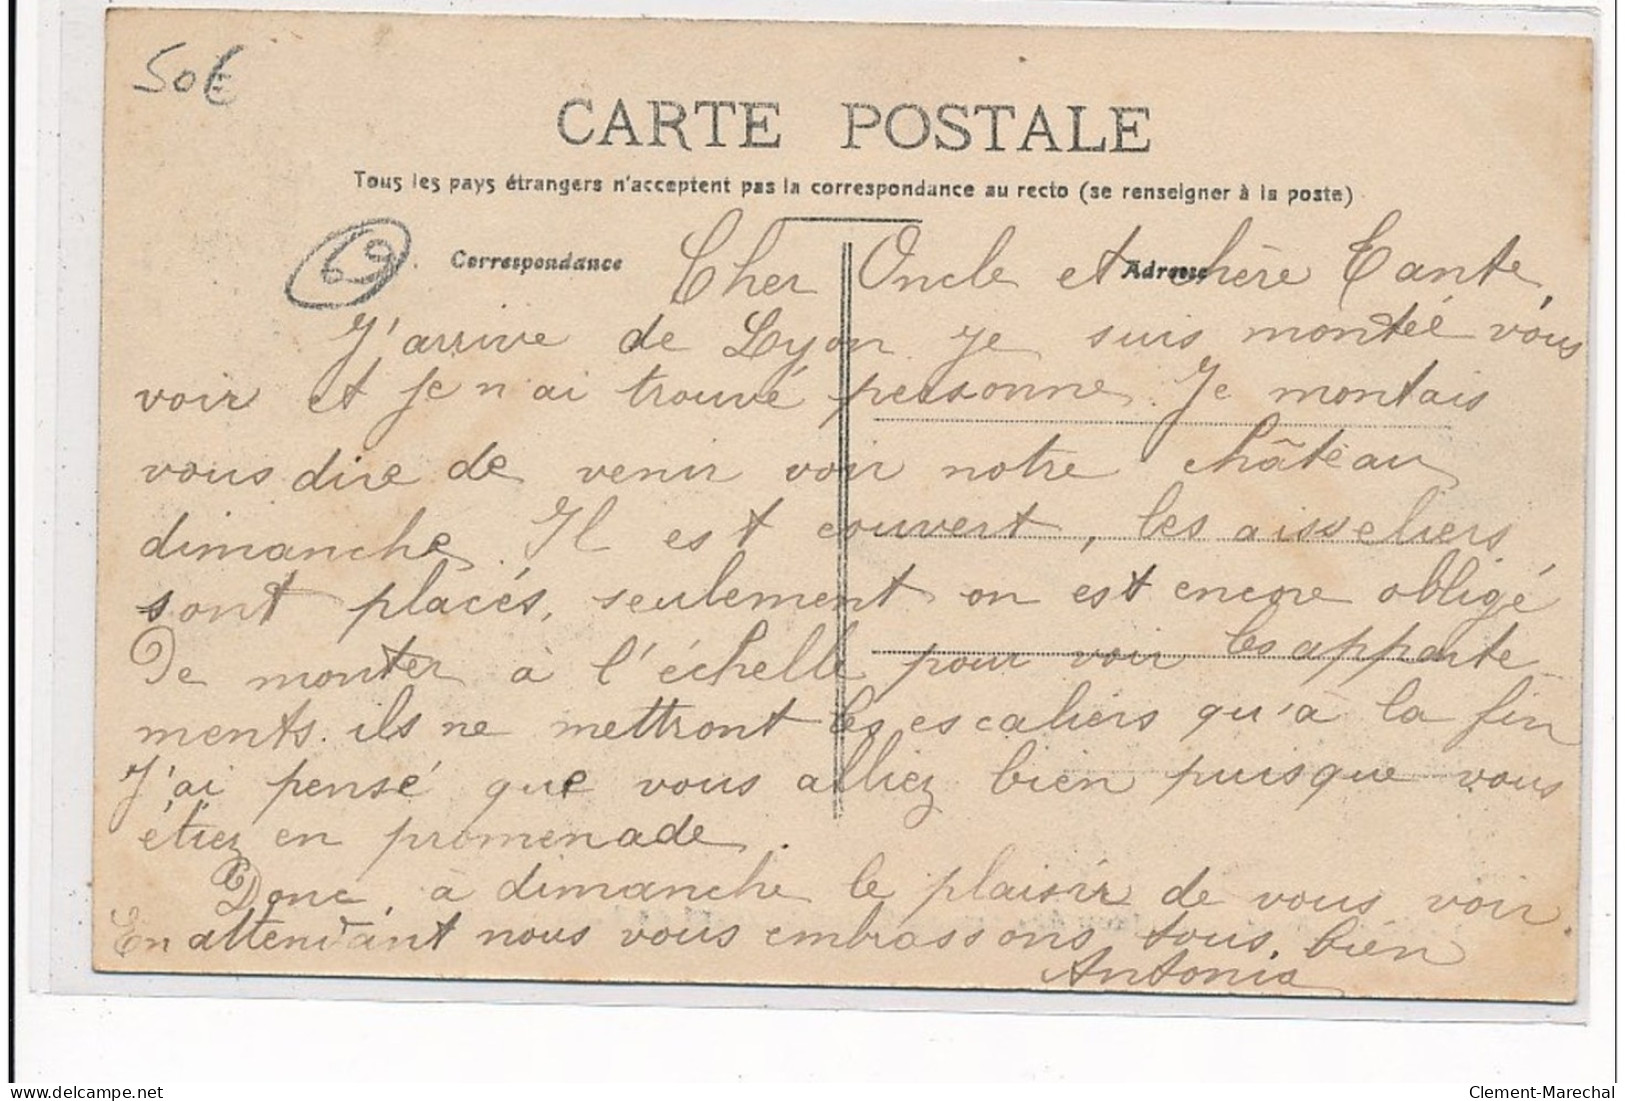 50€
CARTE POSTALE
Tous les pays étrangers n'acceptent pas la correspondance au recto (se renseigner à la poste)
69
Correspondance
Adresse
Cher Oncle et chère Tante,
J'arrive de Lyon je suis montée vous
voir et je n'ai trouvé personne. Je montais
vous dire de venir voir notre château
dimanche. Il est couvert, les aisseliers
sont placés, seulement on est encore obligé
De monter à l'échelle pour voir les apparte
ments. ils ne mettront les escaliers qu'à la fin
J'ai pensé que vous alliez bien puisque vous
étiez en promenade.
Donc, à dimanche le plaisir de vous voir.
En attendant nous vous embrassons tous bien
Antonia
delcampe.net
Clement-Marechal